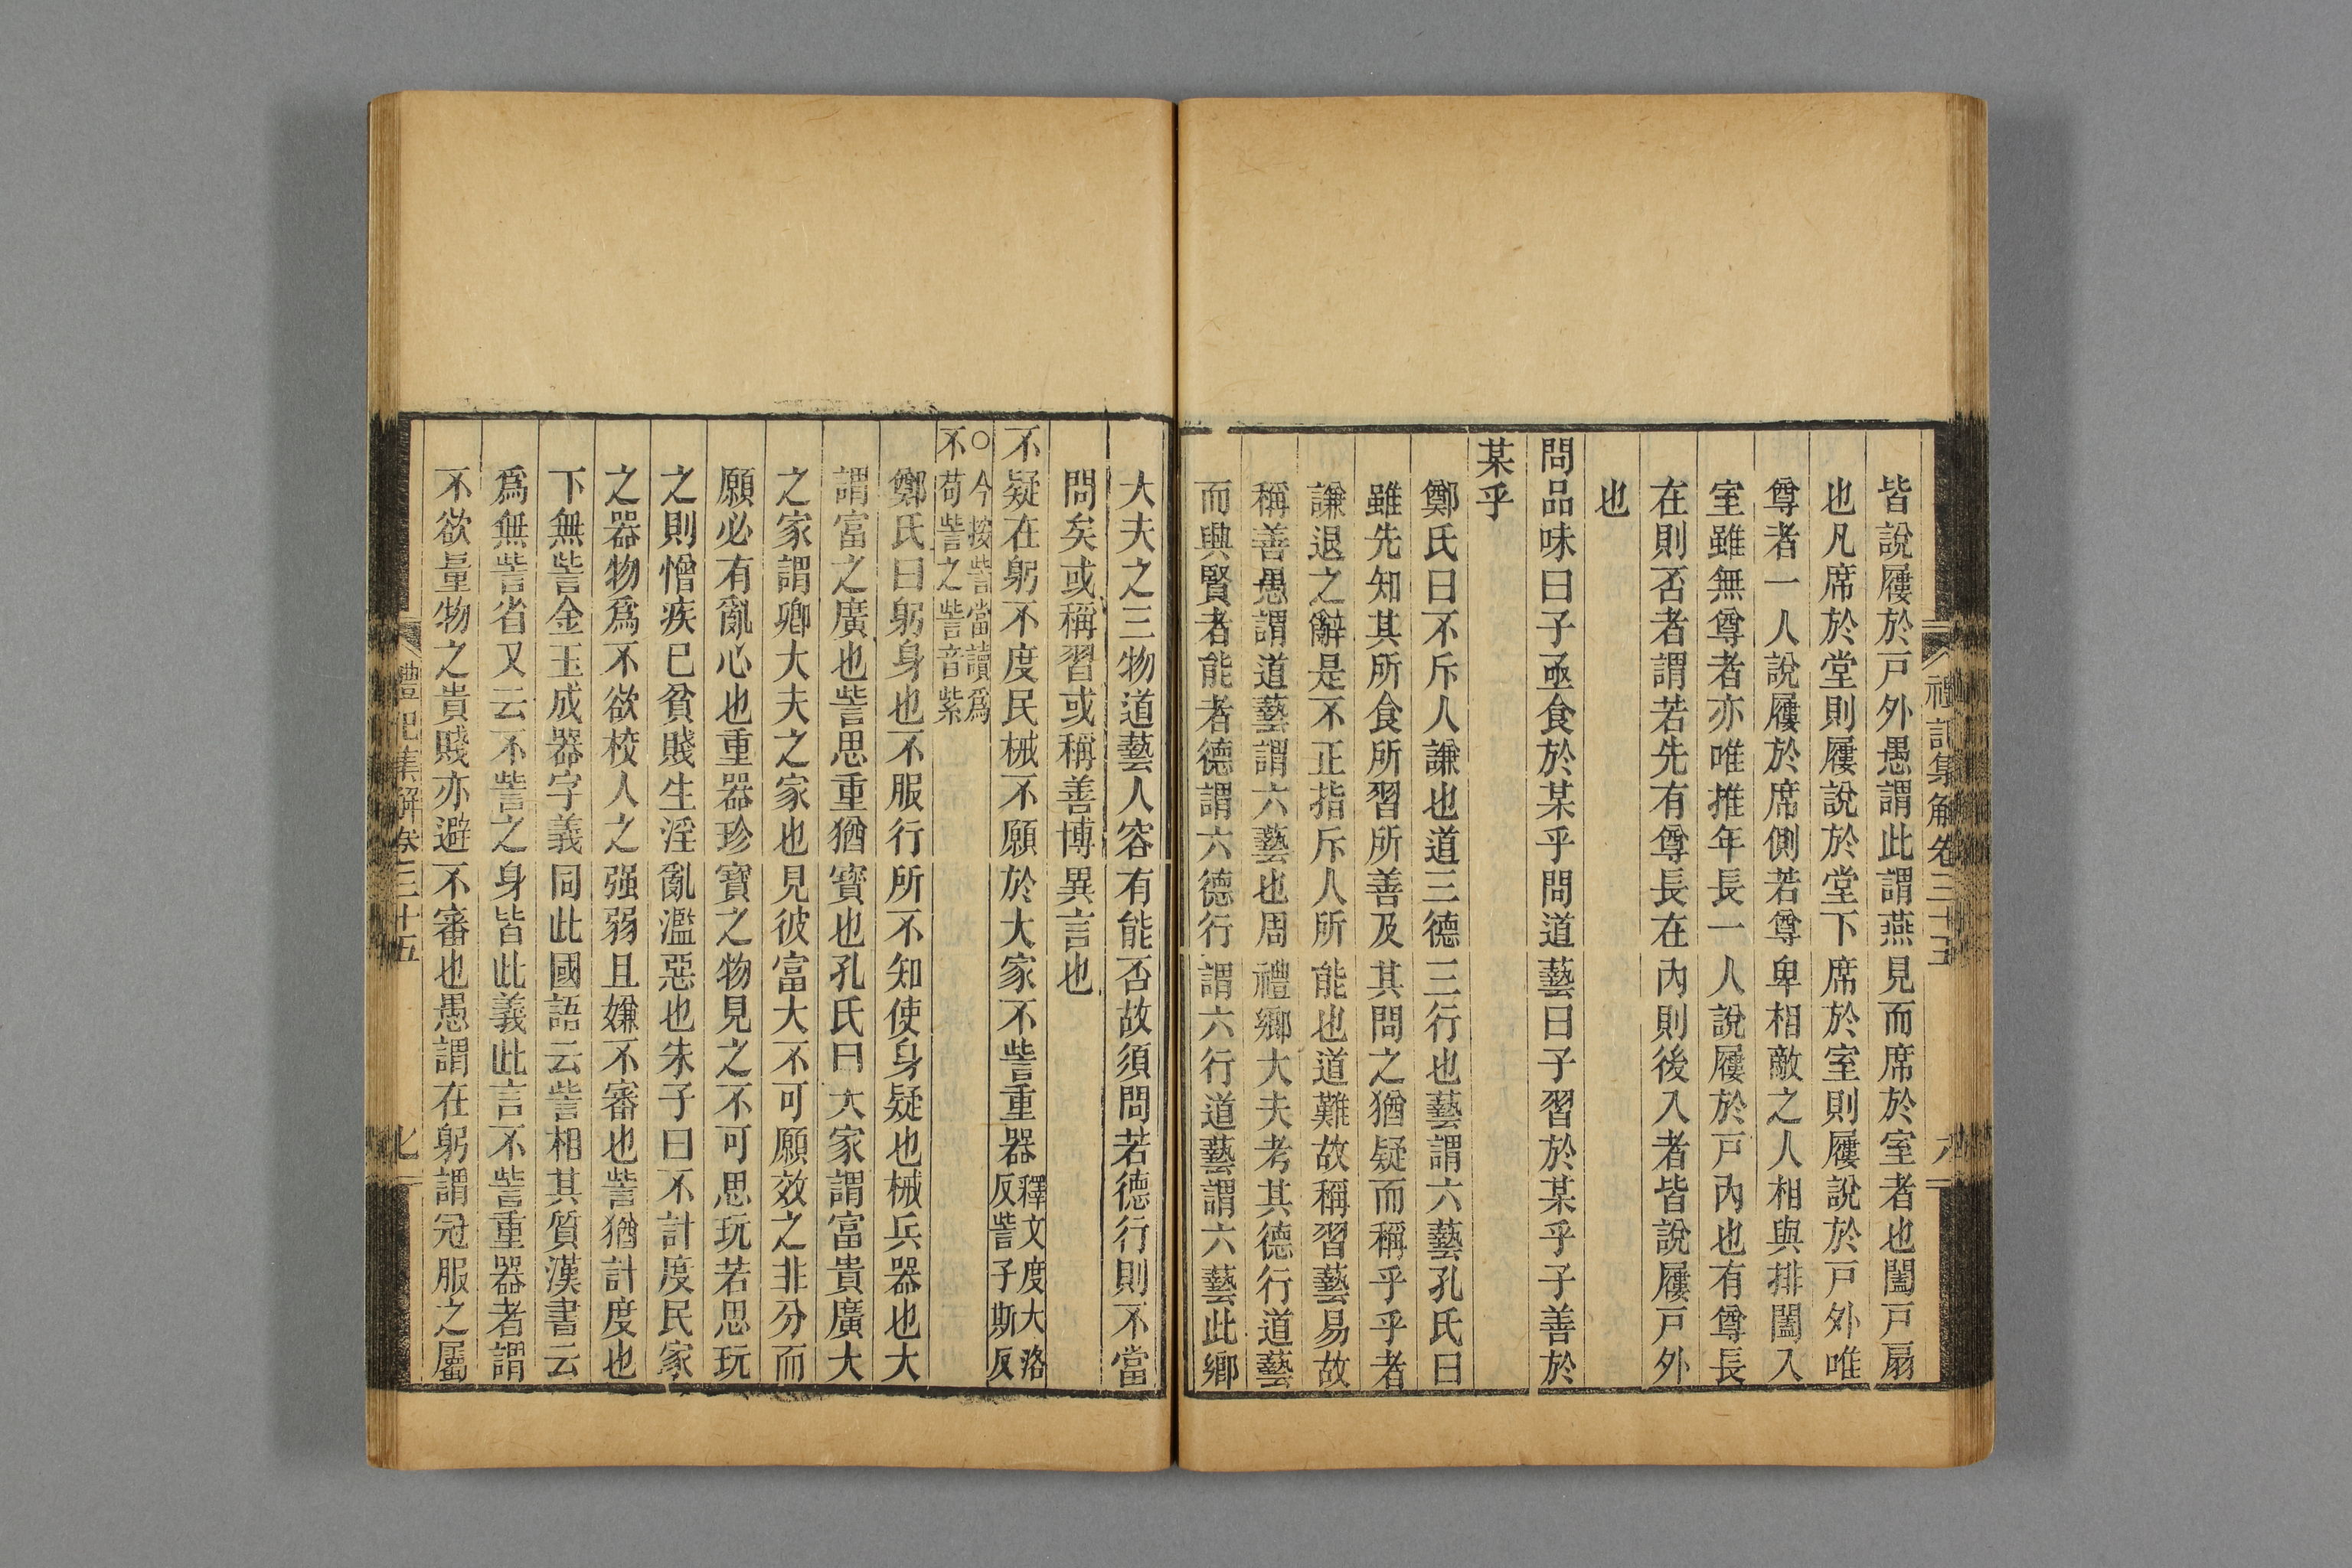 禮記集解卷三十五
皆說屨於戸外愚謂此謂燕見而席於室者也闔戸扇
也凡席於堂則屨說於堂下席於室則屨說於戸外唯
尊者一人說屨於席側若尊卑相敵之人相與排闔入
室雖無尊者亦唯推年長一人說屨於戸內也有尊長
在則否者謂若先有尊長在內則後入者皆說屨戸外
也
問品味曰子亟食於某乎問道藝曰子習於某乎子善於
某乎
鄭氏曰不斥人謙也道三德三行也藝謂六藝孔氏曰
雖先知其所食所習所善及其問之猶疑而稱乎乎者
謙退之辭是不正指斥人所能也道難故稱習藝易故
稱善愚謂道藝謂六藝也周禮鄉大夫考其德行道藝
而興賢者能者德謂六德行謂六行道藝謂六藝此鄉
大夫之三物道藝人容有能否故須問若德行則不當
問矣或稱習或稱善博異言也
不疑在躬不度民械不願於大家不訾重器釋文度大洛
反訾子斯反
○今按訾當讀爲
不苟訾之訾音紫
鄭氏曰躬身也不服行所不知使身疑也械兵器也大
謂富之廣也訾思重猶寶也孔氏曰大家謂富貴廣大
之家謂卿大夫之家也見彼富大不可願效之非分而
願必有亂心也重器珍寶之物見之不可思玩若思玩
之則憎疾已貧賤生淫亂濫惡也朱子曰不計度民家
之器物爲不欲校人之强弱且嫌不審也訾猶計度也
下無訾金玉成器字義同此國語云訾相其質漢書云
爲無訾省又云不訾之身皆此義此言不訾重器者謂
不欲量物之貴賤亦避不審也愚謂在躬謂冠服之屬
禮記集解卷三十五
七